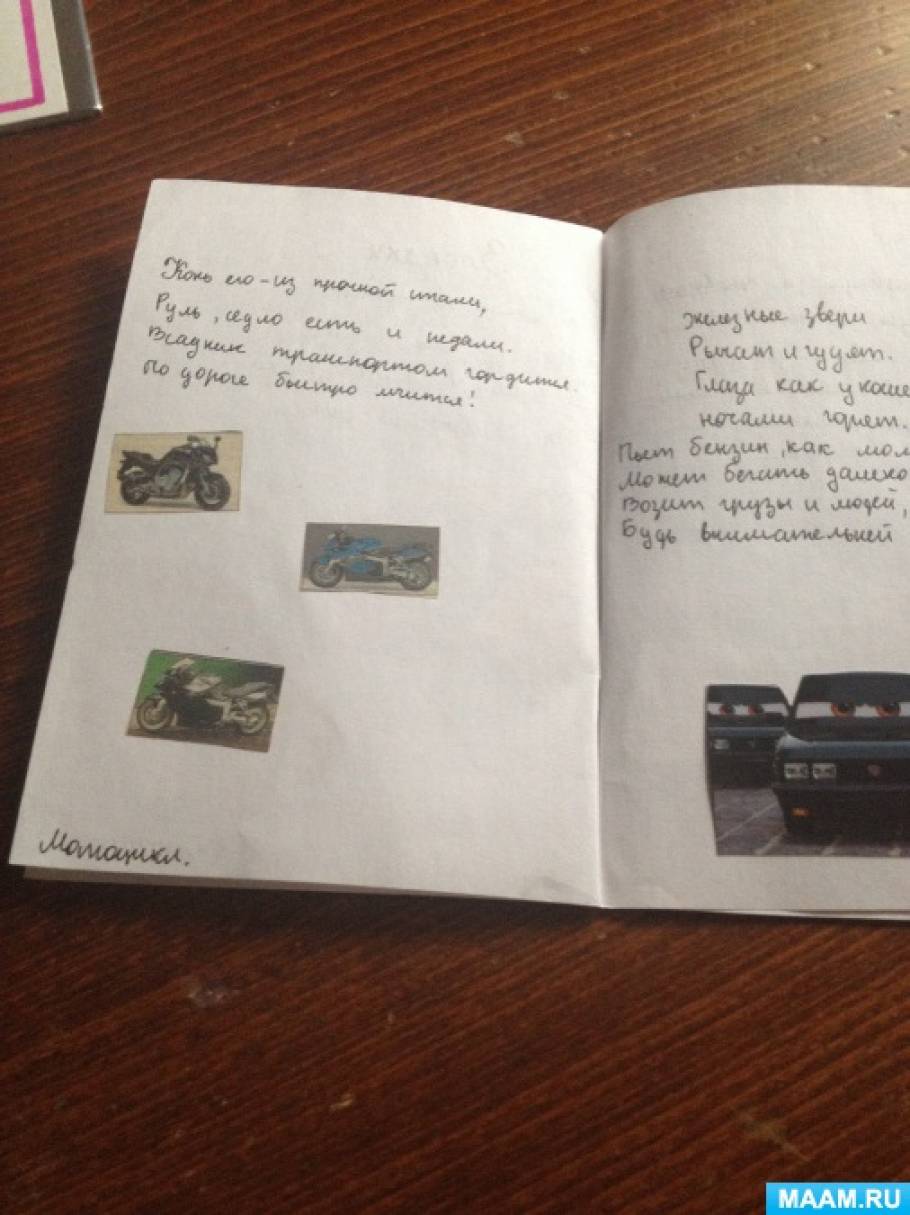 Конь его - из прочной стали,
Руль, седло есть и педали.
Всадник транспортом гордится.
По дороге быстро мчится!
Мотоцикл.
Железные звери
Рычат и гудят.
Глаза как у коше
ночами горят.
Пьет бензин, как мол
Может бегать далеко
Возит грузы и людей,
Будь внимательней
MAAM.RU